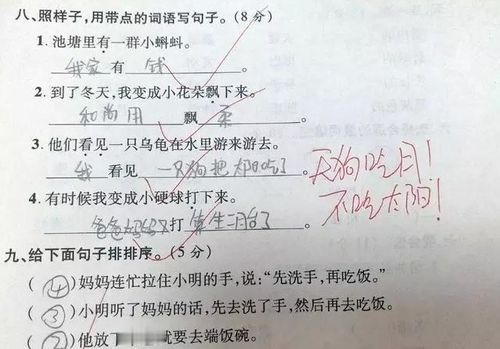 八、照样子,用带点的词语写句子。(8分)
1. 池塘里有一群小蝌蚪。
我家有钱。
2. 到了冬天,我变成小花朵飘下来。
和尚用飘柔。
3. 他们看见一只乌龟在水里游来游去。
我看见一只狗把太阳吃了。
天狗吃月!
不吃太阳!
4. 有时候我变成小硬球打下来。
爸爸妈妈又打算生二月台了。
九、给下面句子排排序。(5分)
(④)妈妈连忙拉住小明的手,说:“先洗手,再吃饭。”
(③)小明听了妈妈的话,先去洗了手,然后再去吃饭。
(②)他放 就要去端饭碗。